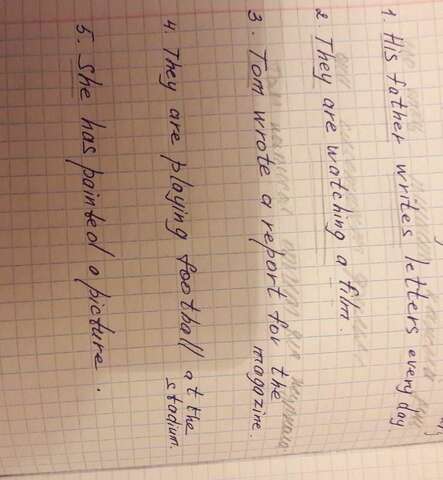 1. His father writes letters every day
2 They are watching a film.
3. Tom wrote a report for the
magazine.
4. They are playing football at the
stadium.
5. She has painted a picture.